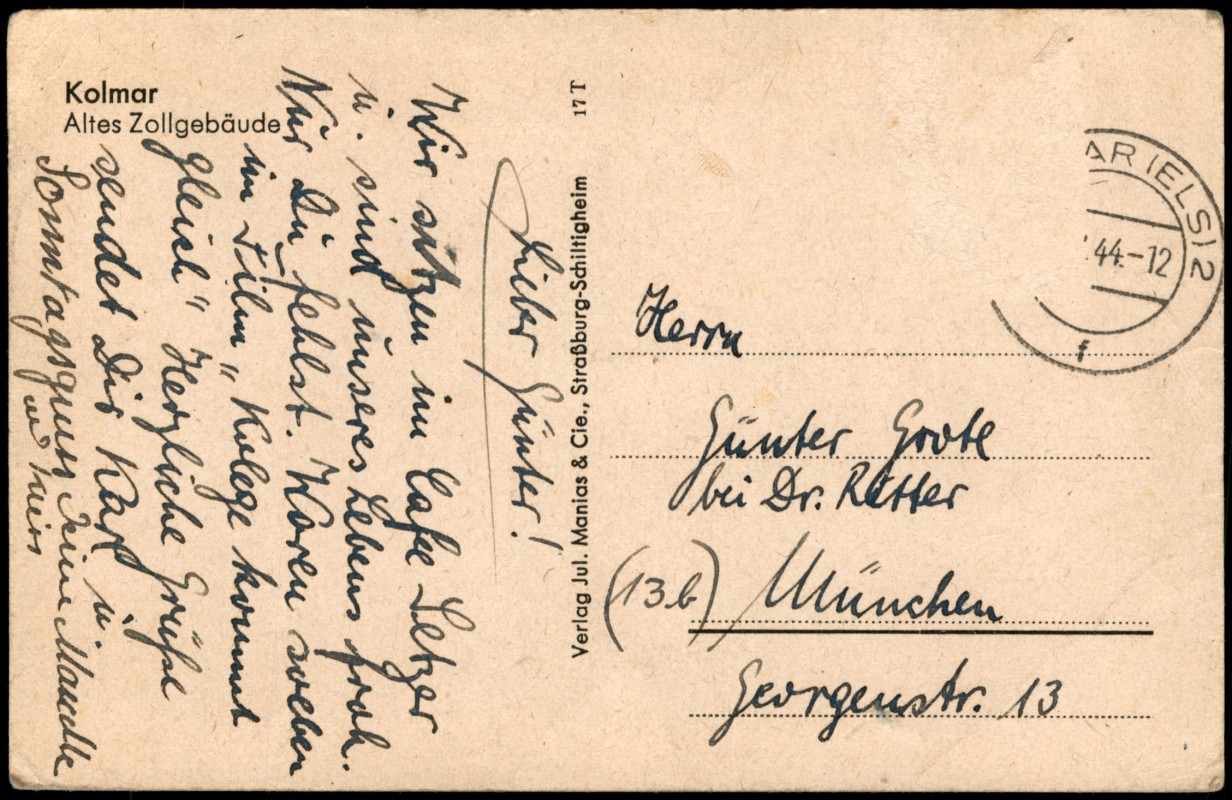 Kolmar
Altes Zollgebäude
Lieber Günter!
Wir sitzen im Cafe Setzer
u. sind unseres Lebens froh.
Nur Du fehlst. Waren soeben
im Film "Kolege kommt
gleich" Herzliche Grüße
sendet Dir Karl u.
Sonntagsgruss
und
17 T
Verlag Jul. Manias & Cie., Straßburg-Schiltigheim
AR (ELS) 2
44.-12
f
Herrn
Günter Grote
bei Dr. Ritter
(13.b) München
Georgenstr. 13